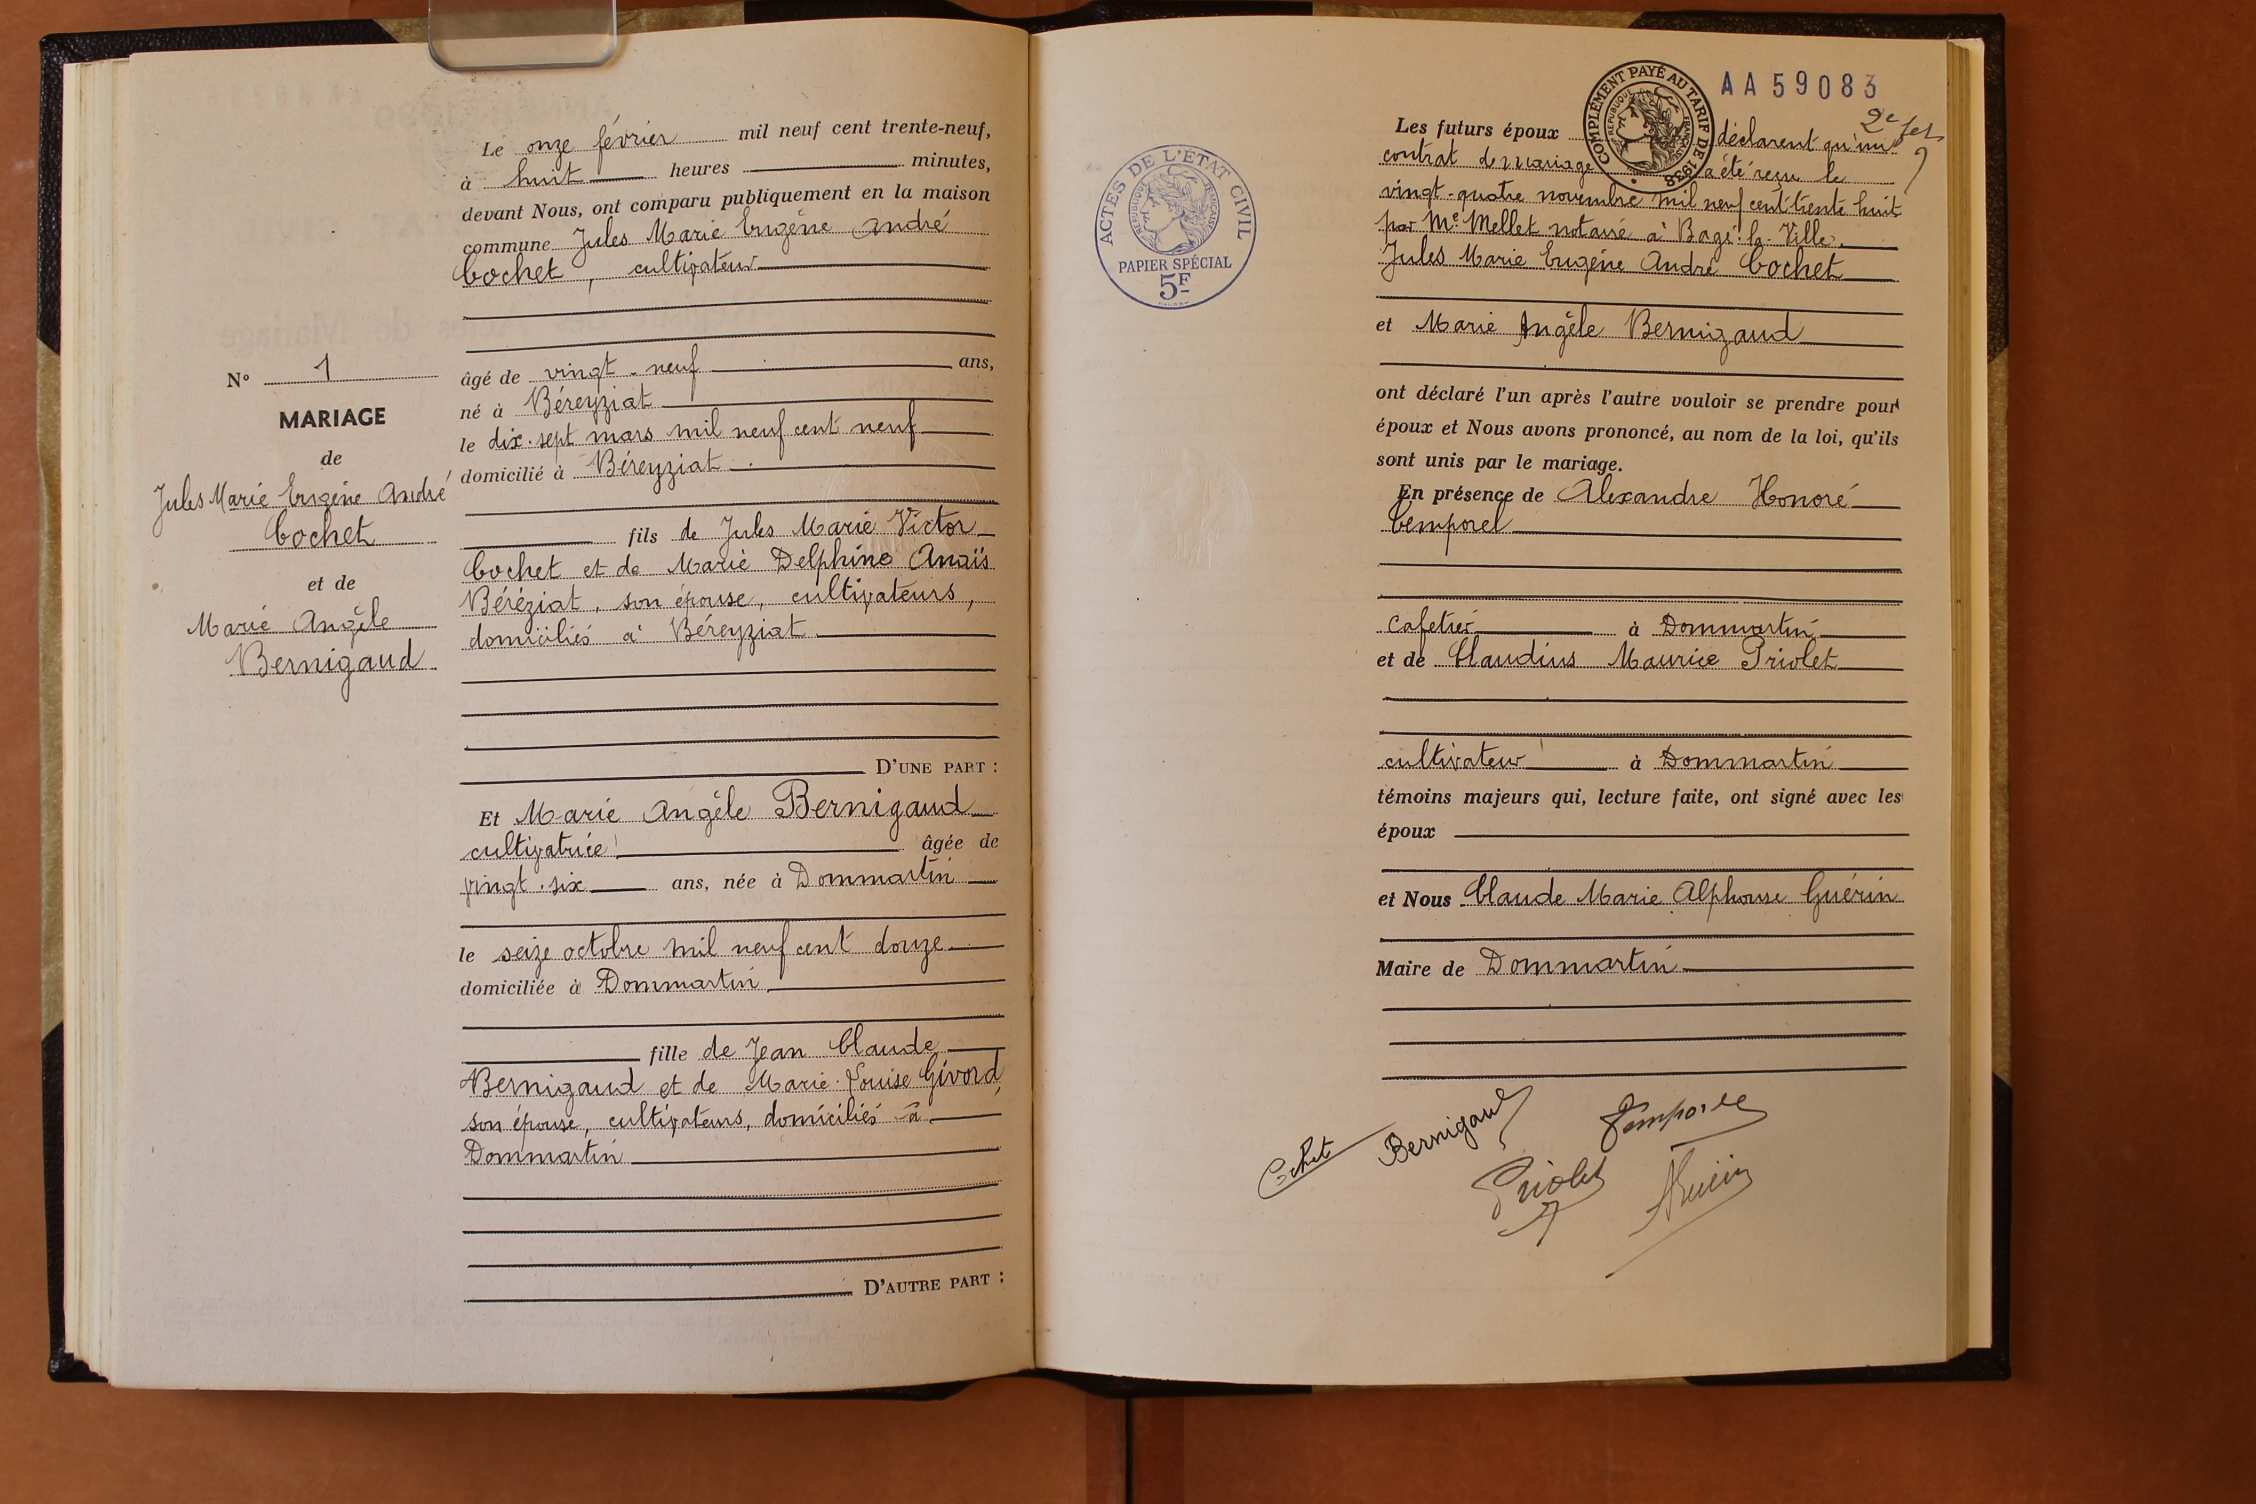 Le onze février mil neuf cent trente-neuf,
à huit heures minutes,
devant Nous, ont comparu publiquement en la maison
commune Jules Marie Eugène André
Cochet, cultivateur
âgé de vingt-neuf ans,
né à Béreyziat
le dix-sept mars mil neuf cent neuf
domicilié à Béreyziat
fils de Jules Marie Victor
Cochet et de Marie Delphine Anaïs
Béréziat, son épouse, cultivateurs,
domiciliés à Béreyziat
D'UNE PART :
Et Marie Angèle Bernigaud
cultivatrice âgée de
vingt-six ans, née à Dommartin
le seize octobre mil neuf cent douze
domiciliée à Dommartin
fille de Jean Claude
Bernigaud et de Marie-Louise Givord,
son épouse, cultivateurs, domiciliés à
Dommartin
D'AUTRE PART :
N° 1
MARIAGE
de
Jules Marie Eugène André
Cochet
et de
Marie Angèle
Bernigaud
ACTES DE L'ÉTAT CIVIL
RÉPUBLIQUE FRANÇAISE
PAPIER SPÉCIAL
5F
COMPLÉMENT PAYÉ AU TARIF DE 1938
RÉPUBLIQUE FRANÇAISE
AA59083
2e
Les futurs époux déclarent qu'un
contrat de mariage a été reçu le
vingt-quatre novembre mil neuf cent trente huit
par Me Mellet notaire à Bagé-la-Ville.
Jules Marie Eugène André Cochet
et Marie Angèle Bernigaud
ont déclaré l'un après l'autre vouloir se prendre pour
époux et Nous avons prononcé, au nom de la loi, qu'ils
sont unis par le mariage.
En présence de Alexandre Honoré
Temporel
cafetier à Dommartin
et de Claudius Maurice Priolet
cultivateur à Dommartin
témoins majeurs qui, lecture faite, ont signé avec les
époux
et Nous Claude Marie Alphonse Guérin
Maire de Dommartin
Cochet Bernigaud Temporel
Priolet AGuérin